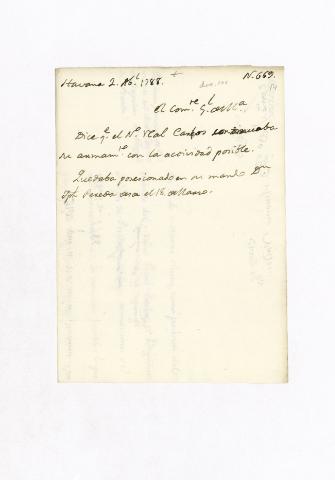 Havana 2. Ab.l 1788.
N. 669.
El Com.te G.l de M.a
Dice q.e el N.o Rl Carlos continuaba
su armam.to con la actividad posible.
Quedaba posesionado en su mando D.n
Jph. Pereda desde el 18. de Marzo.